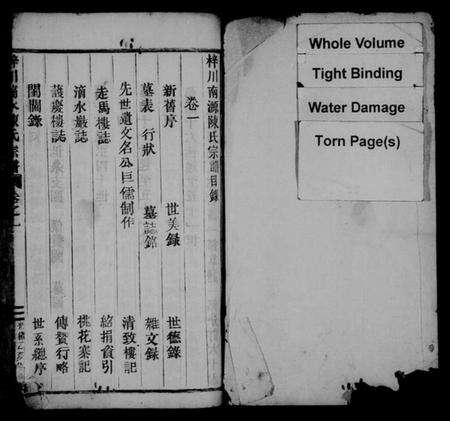 梓川南源陳氏宗譜目錄
卷一
新舊序 世美錄 世德錄
墓表 行狀 墓誌銘 雜文錄
先世遺文名公巨儒制作 清致樓記
走馬樓誌 銘捐資引
滴水巖誌 桃花寨記
護慶樓誌 傳贊行略
閨閫錄 世系總序
Whole Volume
Tight Binding
Water Damage
Torn Page(s)